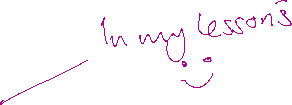 In my lessons